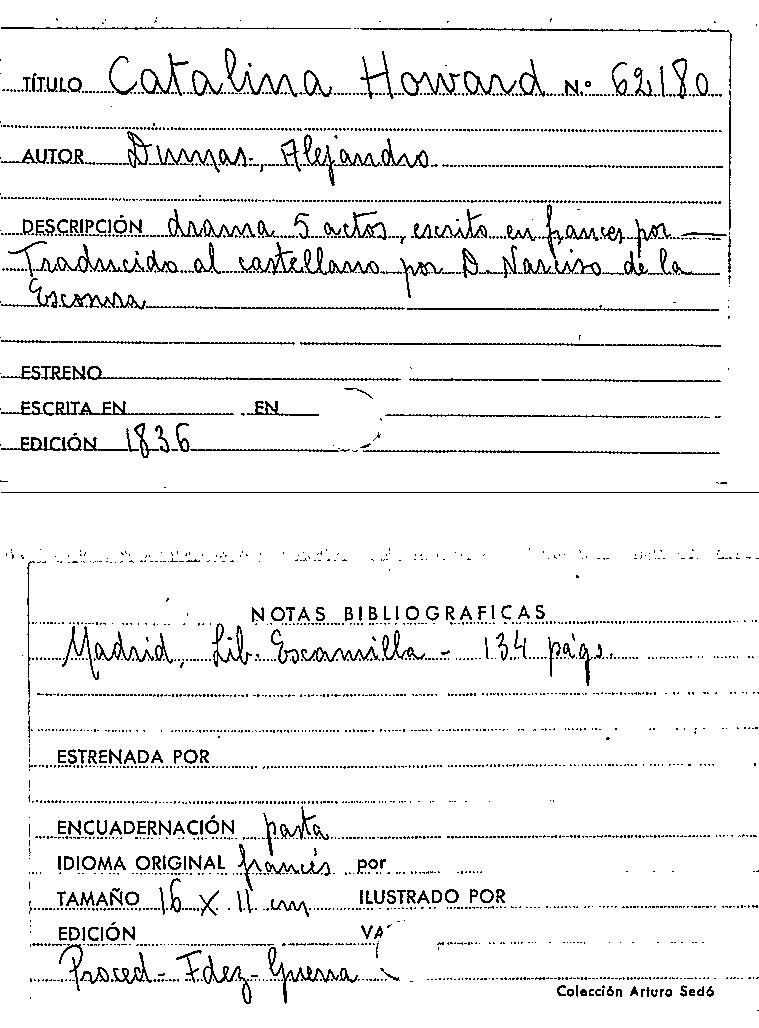 TÍTULO Catalina Howard N.º 62180
AUTOR Dumas, Alejandro
DESCRIPCIÓN drama 5 actos, escrito en frances por —
Traducido al castellano por D. Narciso de la
Escosura
ESTRENO
ESCRITA EN EN
EDICIÓN 1836
NOTAS BIBLIOGRAFICAS
Madrid, Lib. Escamilla - 134 págs.
ESTRENADA POR
ENCUADERNACIÓN pasta
IDIOMA ORIGINAL francés por
TAMAÑO 16 X 11 cm ILUSTRADO POR
EDICIÓN VA
Proced - Fdez - Guerra
Colección Arturo Sedó